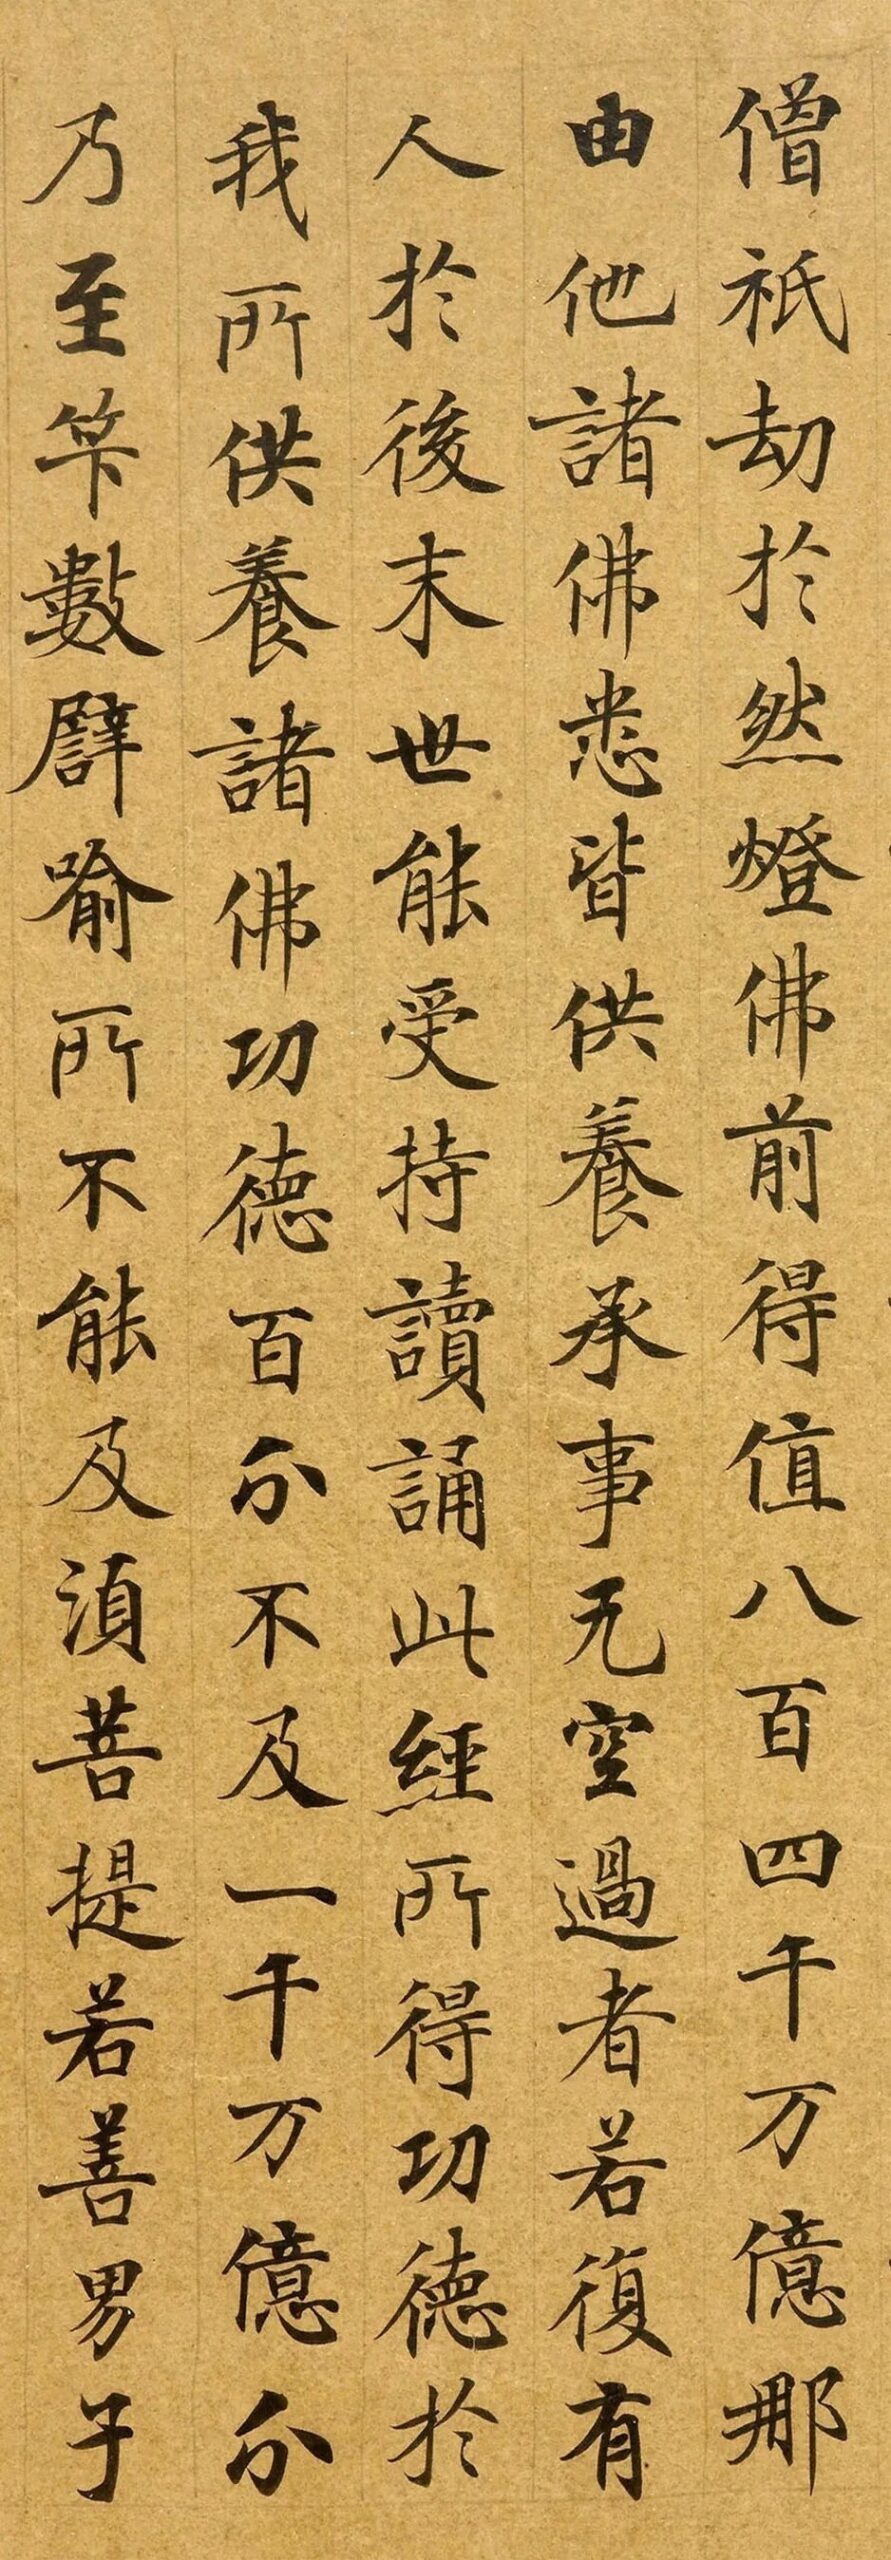 僧祇劫於然燈佛前得值八百四千万億那
由他諸佛悉皆供養承事无空過者若復有
人於後末世能受持讀誦此經所得功德於
我所供養諸佛功德百分不及一千万億分
乃至筭數譬喻所不能及湏菩提若善男子